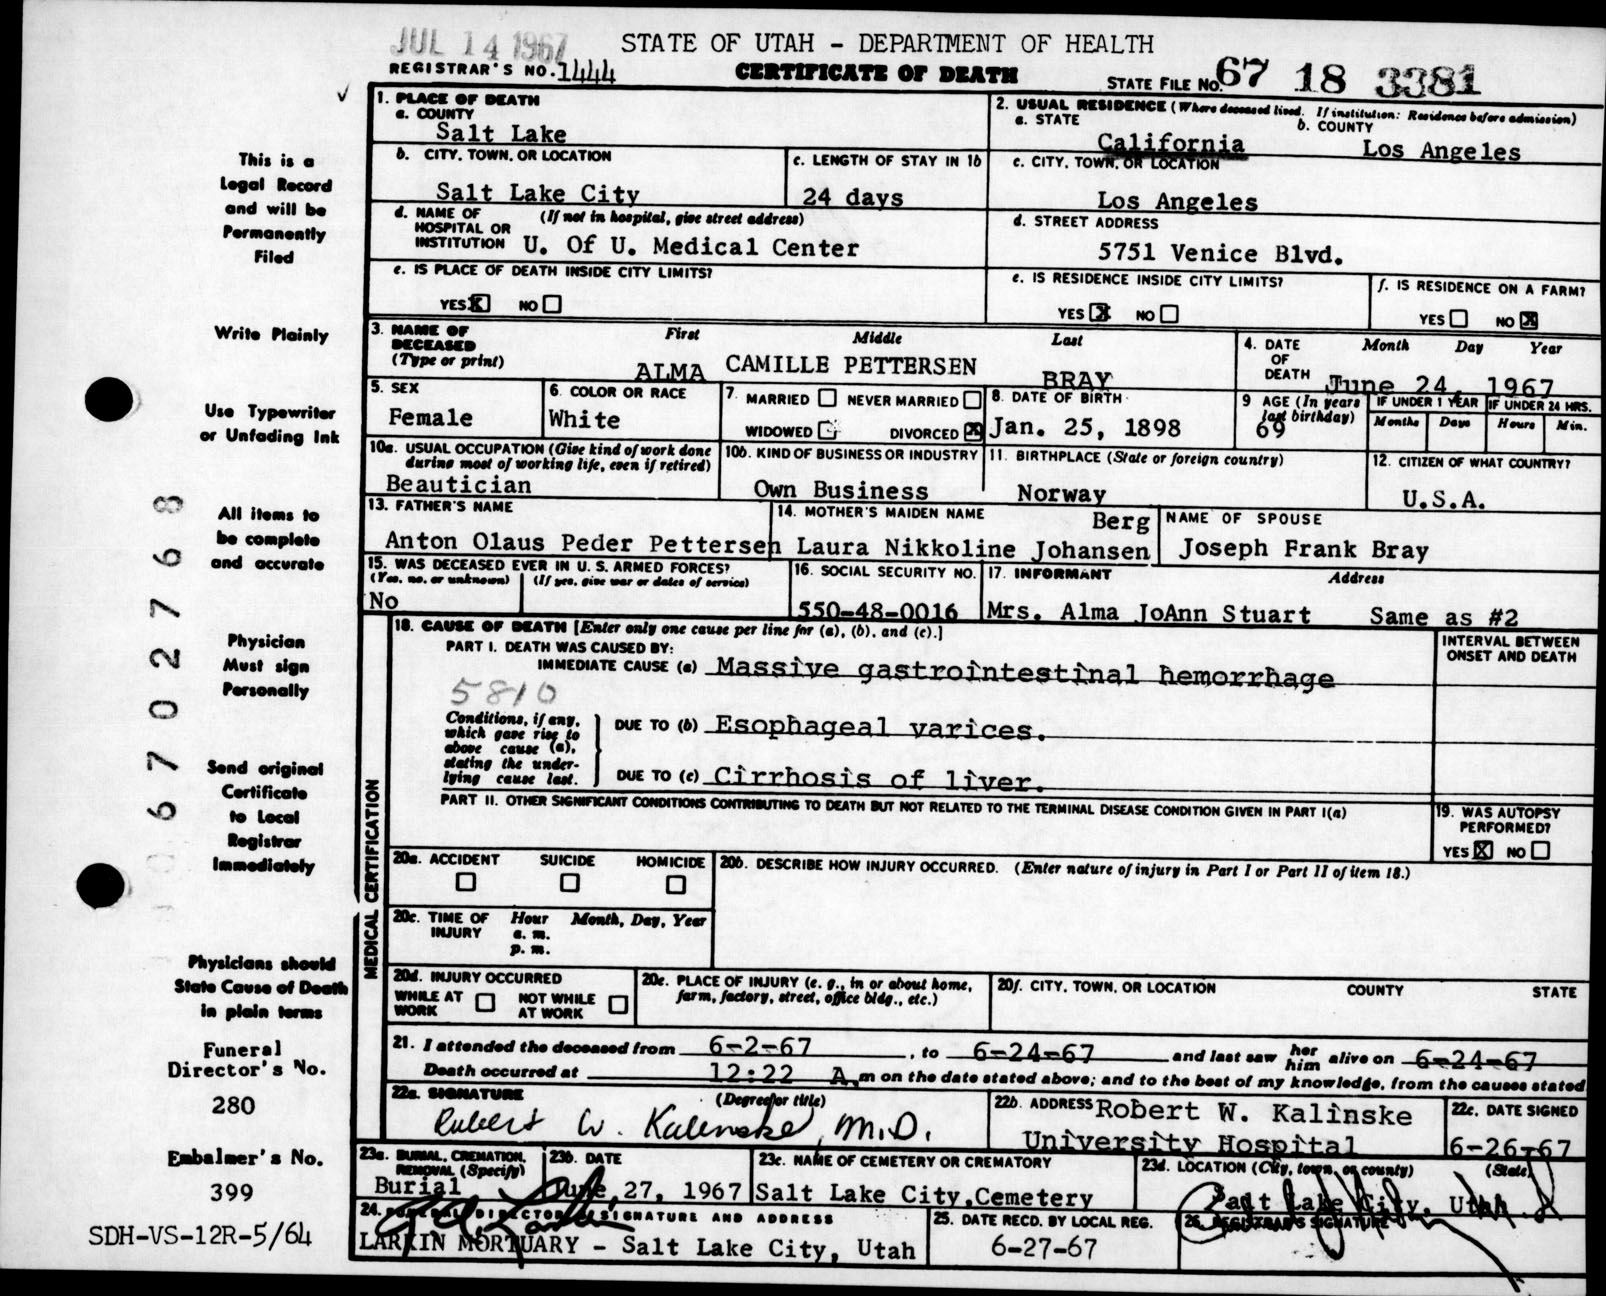 JUL 14 1967
STATE OF UTAH - DEPARTMENT OF HEALTH
REGISTRAR'S NO. 1444
CERTIFICATE OF DEATH
STATE FILE NO. 67 18 3381
1. PLACE OF DEATH
a. COUNTY
Salt Lake
2. USUAL RESIDENCE (Where deceased lived. If institution: Residence before admission)
a. STATE
California
b. COUNTY
Los Angeles
b. CITY, TOWN, OR LOCATION
Salt Lake City
c. LENGTH OF STAY IN 1b
24 days
c. CITY, TOWN, OR LOCATION
Los Angeles
d. NAME OF HOSPITAL OR INSTITUTION
(If not in hospital, give street address)
U. Of U. Medical Center
d. STREET ADDRESS
5751 Venice Blvd.
e. IS PLACE OF DEATH INSIDE CITY LIMITS?
YES X NO
e. IS RESIDENCE INSIDE CITY LIMITS?
YES X NO
f. IS RESIDENCE ON A FARM?
YES NO X
3. NAME OF DECEASED
(Type or print)
First Middle Last
ALMA CAMILLE PETTERSEN BRAY
4. DATE OF DEATH
Month Day Year
June 24, 1967
5. SEX
Female
6. COLOR OR RACE
White
7. MARRIED NEVER MARRIED
WIDOWED DIVORCED X
8. DATE OF BIRTH
Jan. 25, 1898
9 AGE (In years last birthday)
69
IF UNDER 1 YEAR
Months Days
IF UNDER 24 HRS.
Hours Min.
10a. USUAL OCCUPATION (Give kind of work done during most of working life, even if retired)
Beautician
10b. KIND OF BUSINESS OR INDUSTRY
Own Business
11. BIRTHPLACE (State or foreign country)
Norway
12. CITIZEN OF WHAT COUNTRY?
U.S.A.
13. FATHER'S NAME
Anton Olaus Peder Pettersen
14. MOTHER'S MAIDEN NAME
Berg
Laura Nikkoline Johansen
NAME OF SPOUSE
Joseph Frank Bray
15. WAS DECEASED EVER IN U. S. ARMED FORCES?
(Yes, no, or unknown) (If yes, give war or dates of service)
No
16. SOCIAL SECURITY NO.
550-48-0016
17. INFORMANT Address
Mrs. Alma JoAnn Stuart Same as #2
MEDICAL CERTIFICATION
18. CAUSE OF DEATH [Enter only one cause per line for (a), (b), and (c).]
INTERVAL BETWEEN ONSET AND DEATH
PART I. DEATH WAS CAUSED BY:
IMMEDIATE CAUSE (a) Massive gastrointestinal hemorrhage
5810
Conditions, if any, which gave rise to above cause (a), stating the underlying cause last.
DUE TO (b) Esophageal varices.
DUE TO (c) Cirrhosis of liver.
PART II. OTHER SIGNIFICANT CONDITIONS CONTRIBUTING TO DEATH BUT NOT RELATED TO THE TERMINAL DISEASE CONDITION GIVEN IN PART I(a)
19. WAS AUTOPSY PERFORMED?
YES X NO
20a. ACCIDENT SUICIDE HOMICIDE
20b. DESCRIBE HOW INJURY OCCURRED. (Enter nature of injury in Part I or Part II of item 18.)
20c. TIME OF INJURY
Hour Month, Day, Year
a. m.
p. m.
20d. INJURY OCCURRED
WHILE AT WORK NOT WHILE AT WORK
20e. PLACE OF INJURY (e. g., in or about home, farm, factory, street, office bldg., etc.)
20f. CITY, TOWN, OR LOCATION COUNTY STATE
21. I attended the deceased from 6-2-67, to 6-24-67 and last saw her him alive on 6-24-67
Death occurred at 12:22 A m on the date stated above; and to the best of my knowledge, from the causes stated
22a. SIGNATURE (Degree or title)
Robert W. Kalinske, M.D.
22b. ADDRESS Robert W. Kalinske
University Hospital
22c. DATE SIGNED
6-26-67
23a. BURIAL, CREMATION, REMOVAL (Specify)
Burial
23b. DATE
June 27, 1967
23c. NAME OF CEMETERY OR CREMATORY
Salt Lake City, Cemetery
23d. LOCATION (City, town, or county) (State)
Salt Lake City, Utah
24. FUNERAL DIRECTOR'S SIGNATURE AND ADDRESS
LARKIN MORTUARY - Salt Lake City, Utah
25. DATE RECD. BY LOCAL REG.
6-27-67
26. REGISTRAR'S SIGNATURE
This is a
Legal Record
and will be
Permanently
Filed
Write Plainly
Use Typewriter
or Unfading Ink
All items to
be complete
and accurate
Physician
Must sign
Personally
Send original
Certificate
to Local
Registrar
Immediately
Physicians should
State Cause of Death
in plain terms
Funeral
Director's No.
280
Embalmer's No.
399
SDH-VS-12R-5/64
067702768